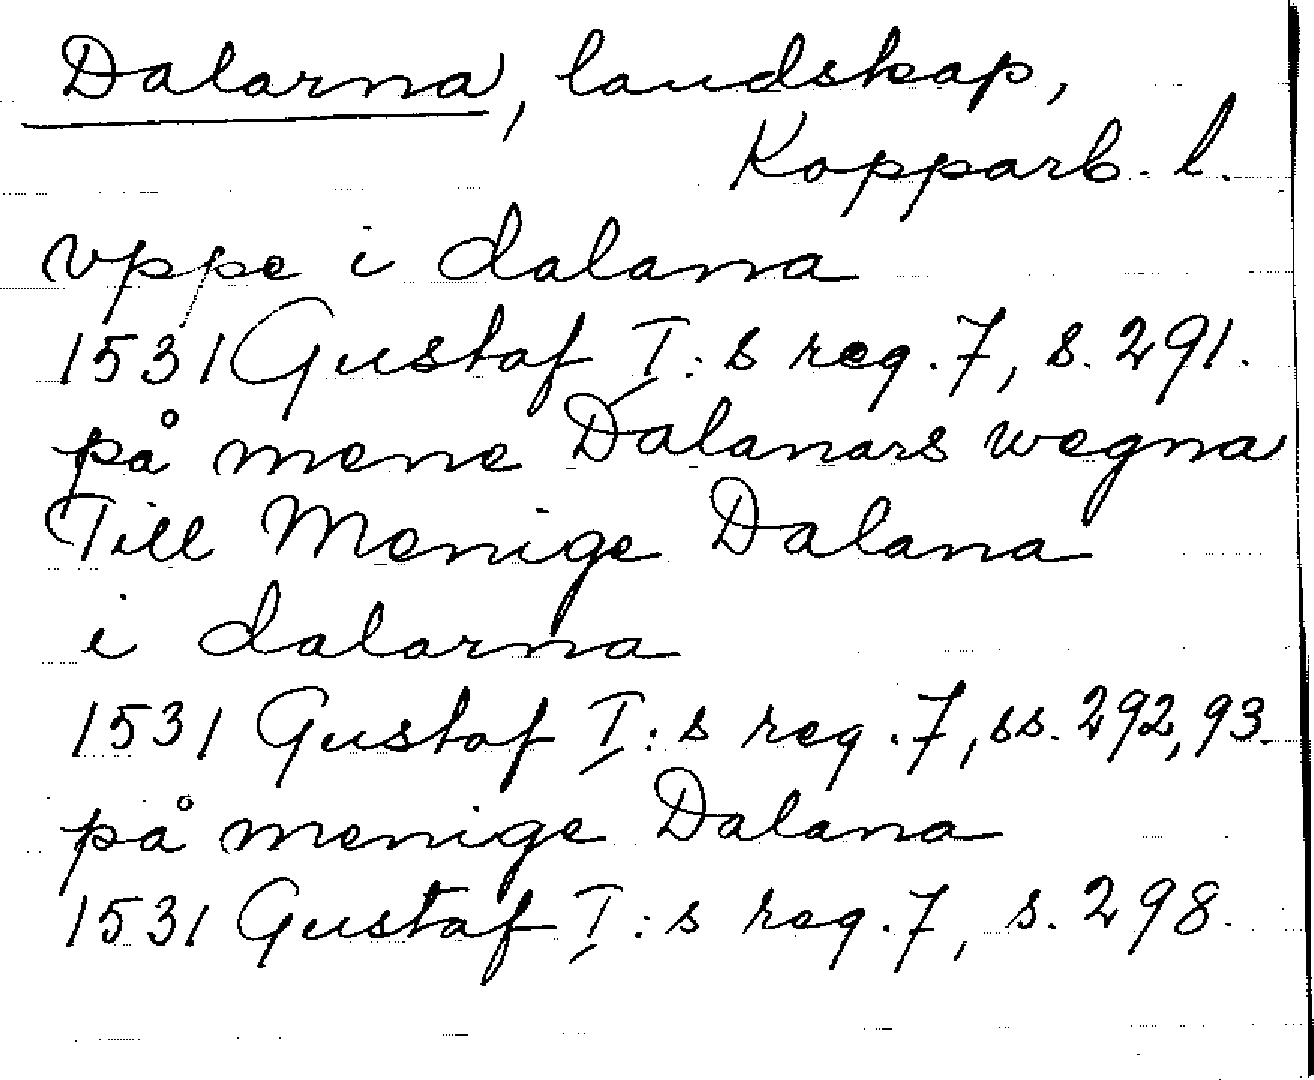 Dalarna, landskap,
Kopparb. l.
vppe i dalana
1531 Gustaf I:s reg. 7, s. 291.
på mene Dalanars wegna
Till Menige Dalana
i dalarna
1531 Gustaf I:s reg. 7, ss. 292, 93.
på menige Dalana
1531 Gustaf I:s reg. 7, s. 298.